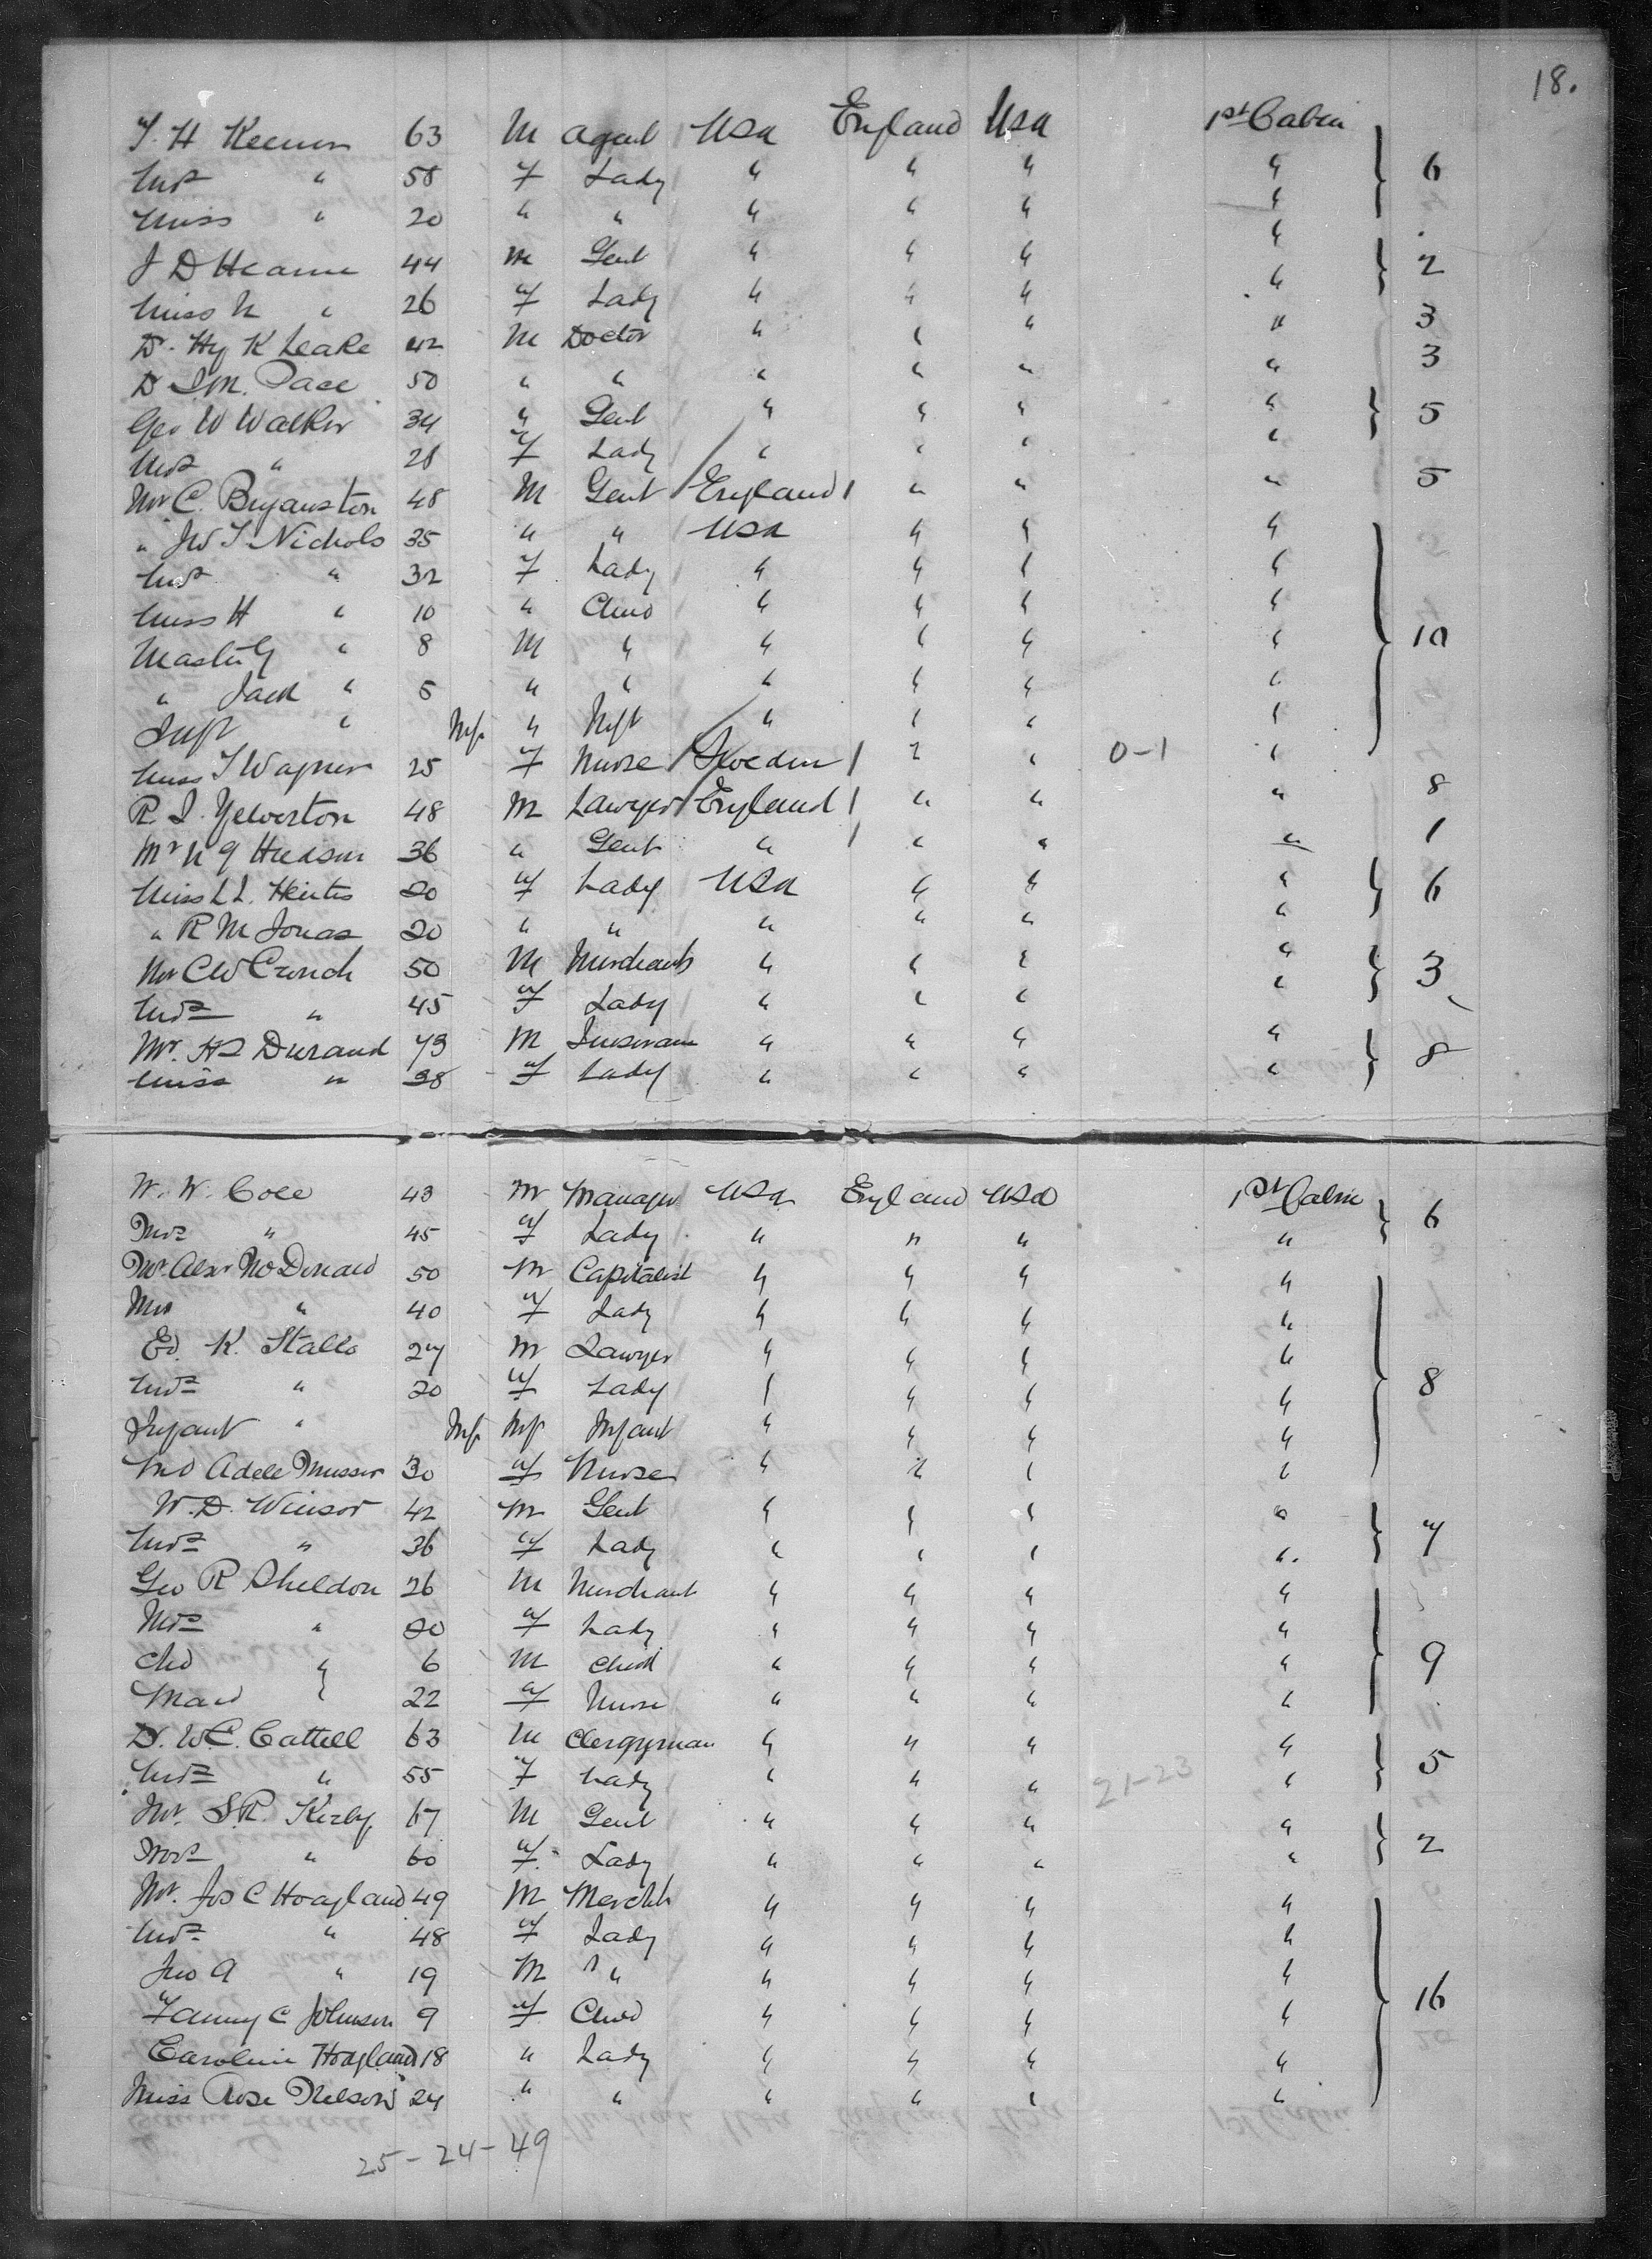 18.
T. H Keenen 63 M Agent USA England USA 1st Cabin
Mrs " 58 F Lady " " " " 6
Miss " 20 " " " " " "
J D Hearne 44 M Gent " " " " 2
Miss N " 26 F Lady " " " "
Dr. Hy K Leake 42 M Doctor " " " " 3
Dr I.M. Pace 50 " " " " " " 3
Geo W Walker 34 " Gent " " " " 5
Mrs " 28 F Lady " " " "
Mr C. Bryanston 48 M Gent England " " " 5
" Jno T Nichols 35 " " USA " " "
Mrs " 32 F Lady " " " "
Miss H " 10 " Child " " " "
Master G " 8 M " " " " " 10
" Jack " 5 " " " " " "
Inft " Inf. " Inft " " " "
Miss T Wagner 25 F Nurse Sweden " " 0-1 "
R. D. Yelverton 48 M Lawyer England " " " 8
Mr N G Hudson 36 " Gent " " " " 1
Miss L L. 20 F Lady USA " " " 6
" R M Jonas 20 " " " " " "
Mr C W Crouch 50 M Merchant " " " " 3
Mrs " 45 F Lady " " " "
Mr. H S Durand 73 M Insurance " " " " 8
Miss " 38 F Lady " " " "
W. W. Cole 43 M Manager USA England USA 1st Cabin 6
Mrs " 45 F Lady " " " "
Mr. Alexr McDonald 50 M Capitalist " " " "
Mrs " 40 F Lady " " " "
Ed. K. Stallo 27 M Lawyer " " " "
Mrs " 20 F Lady " " " " 8
Infant " Inf. Inf Infant " " " "
Mrs Adele Musser 30 F Nurse " " " "
W. D. Winsor 42 M Gent " " " " 7
Mrs " 36 F Lady " " " "
Geo R Sheldon 26 M Merchant " " " "
Mrs " 20 F Lady " " " "
Chd " 6 M Child " " " " 9
Maid " 22 F Nurse " " " "
D. W.C. Cattell 63 M Clergyman " " " " 5
Mrs " 55 F Lady " " " 21-23 "
Mr. S.R. Kirby 67 M Gent " " " " 2
Mrs " 60 F. Lady " " " "
Mr. Jos C Hoagland 49 M Mercht " " " "
Mrs " 48 F Lady " " " "
Jno A " 19 M " " " " "
Fanny C Johnson 9 F Child " " " " 16
Caroline Hoagland 18 " Lady " " " "
Miss Rose Nelson 24 " " " " " "
25-24-49